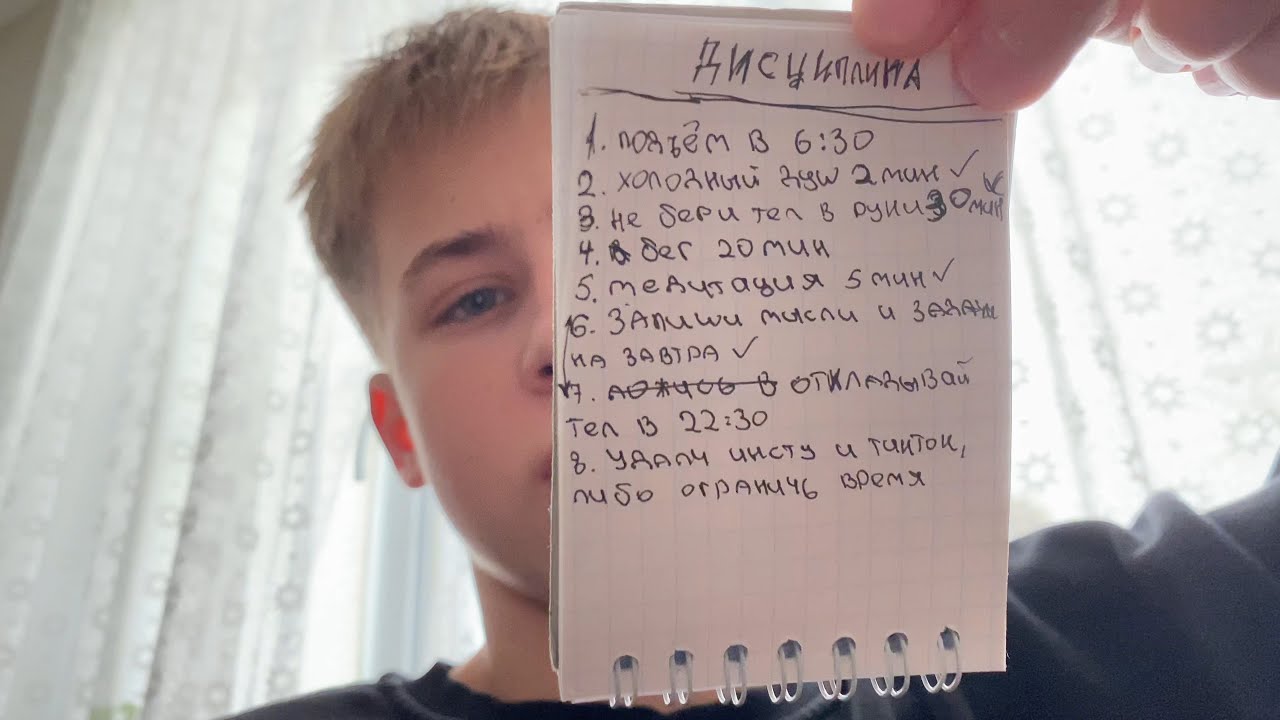 ДИСЦИПЛИНА
1. подъём в 6:30
2. холодный душ 2 мин ✓
3. не бери тел в руки 30 мин ✓
4. бег 20 мин
5. медитация 5 мин ✓
6. Запиши мысли и задачи
на завтра ✓
7. ложись в откладывай
тел в 22:30
8. удали инсту и тикток,
либо ограничь время